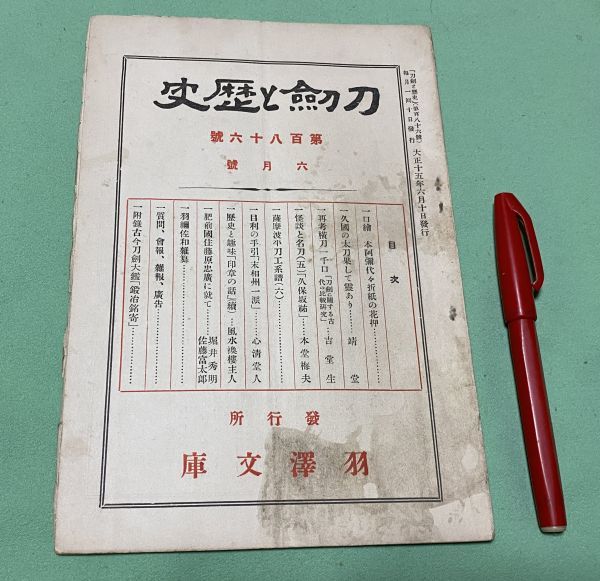 「刀劍と歴史」(第百八十六號)
每月一回十日發行
大正十五年六月十日發行
刀劍と歴史
第百八十六號
六月號
目次
一口繪 本阿彌代々折紙の花押
一久國の太刀果して靈あり 靖堂
一再考横刀一千口 吉堂生
一怪談と名刀(五)「久保坂祐」 本堂梅夫
一薩摩波平刀工系譜(六)
一目利の手引「末相州一派」 心清堂人
一歴史と趣味「印章の話」續 風水渙樓主人
一肥前國住藤原忠廣に就て 堀井秀明
佐藤富太郎
一羽彌佐和雜纂
一質問、會報、雜報、廣告
一附錄古今刀劍大鑑「鍛冶銘寄」
發行所
羽澤文庫